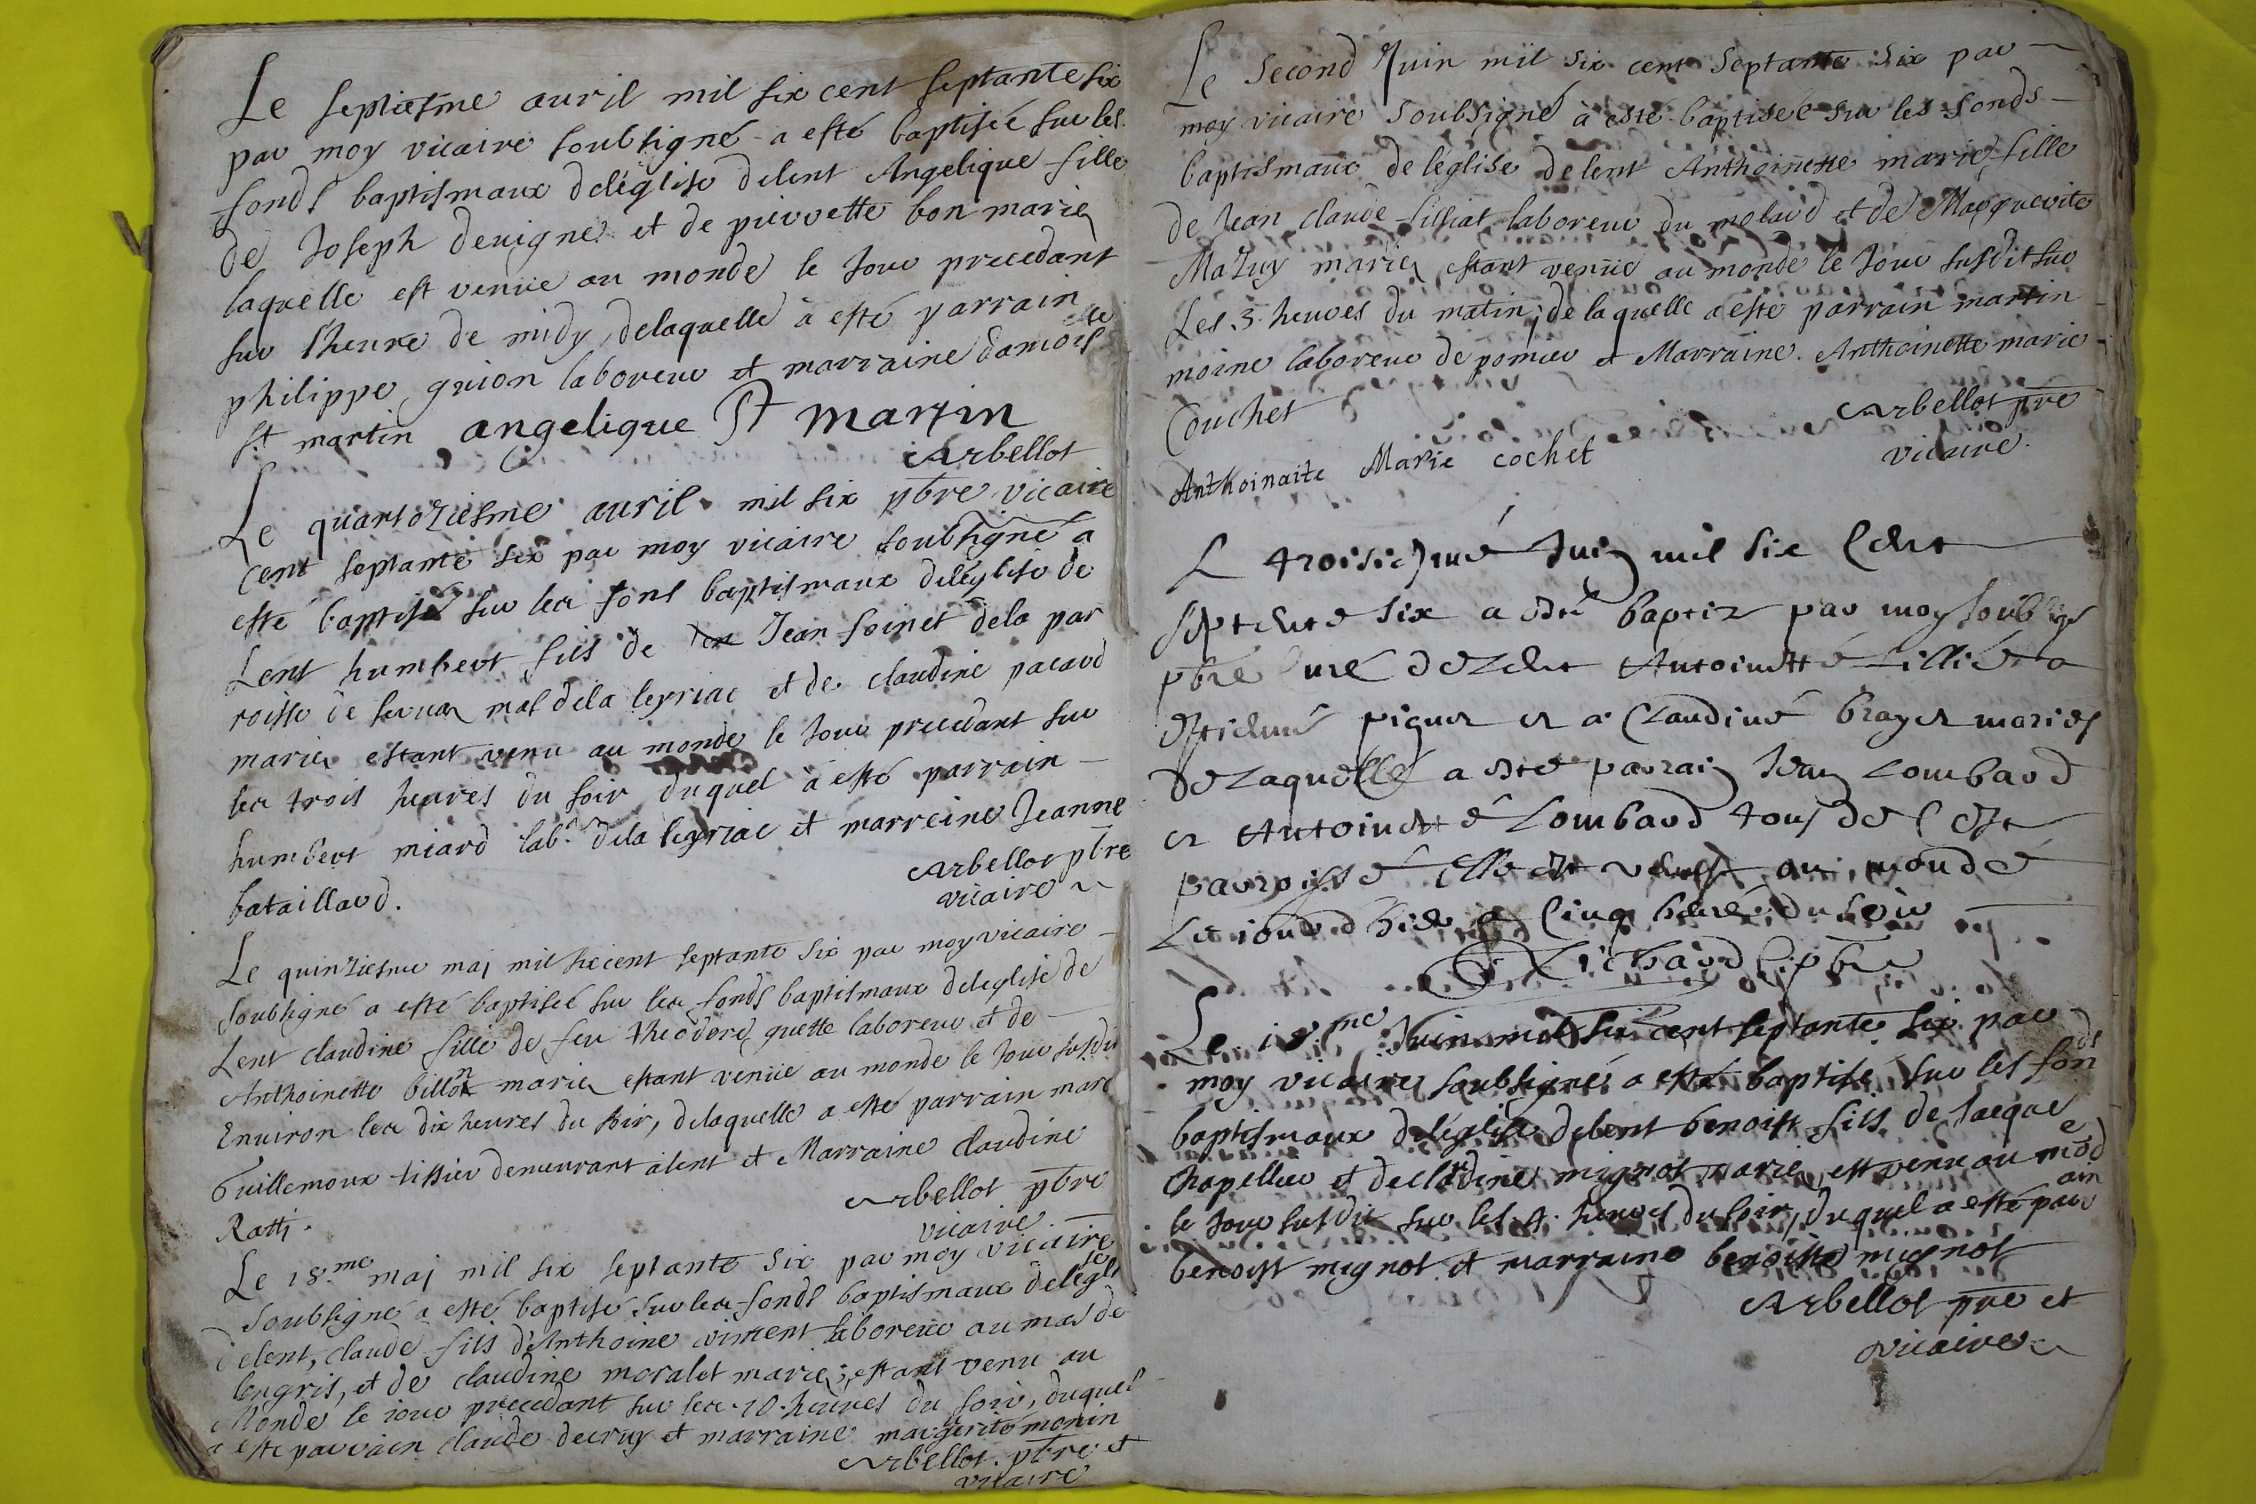 Le septiesme auril mil six cent septante six
par moy vicaire soubsigné a esté baptiseé sur les
fonds baptismaux deléglise delent Angelique fille
de Joseph deuigne et de pierrette bon mariez
laquelle est venüe au monde le Jour precedant
sur l'heure de midy, delaquelle à esté parrain
philippe guion laboreur et marraine damoiselle
St martin angelique St martin
Arbellot
pbre vicaire
Le quartoziesme auril mil six
cent septante six par moy vicaire soubsigné a
esté baptisé sur les fons baptismaux deléglise de
Lent humbert fils de Jean soinet dela par
roisse de seruas mas dela leyriac et de claudine pacaud
mariez estant venu au monde le Jour precedant sur
les trois heures du soir duquel à esté parrain
humbert miard labr dela leyriac et marreine Jeanne
bataillard.
Arbellot pbre
vicaire
Le quinziesme maj mil six cent septante six par moy vicaire
soubsigné a esté baptiseé sur les fonds baptismaux deleglise de
Lent claudine fille de feu theodore guette laboreur et de
Anthoinette billon mariez estant venüe au monde le Jour susdit
Enuiron les dix heures du soir, delaquelle a esté parrain marc
Guillemoux tissier demeurant à lent et Marraine claudine
Ratti.
Arbellot pbre
vicaire.
Le 18.me maj mil six septante six par moy vicaire
soubsigné a esté baptisé sur les fonds baptismaux deleglise
delent, claude fils d'Anthoine vincent laboreur au mas de
longris, et de claudine moralet mariez, estant venu au
Monde le iour precedant sur les 10. heures du soir, duquel
a esté parrain claude decruy et marraine marguerite monin
Arbellot. pbre et
vicaire
Le second Juin mil six cent septante six par
moy vicaire soubsigné à esté baptiseé sur les fonds
baptismaux de léglise delent Anthoinette marie fille
de Jean claude filliat laboreur du molard et de Marguerite
Mazuy mariez estant venüe au monde le Jour susdit sur
Les 3. heures du matin, de laquelle a esté parrain martin
moine laboreur de pomier et Marraine. Anthoinette marie
Couchet
Arbellot pre
vicaire.
Anthoinaite Marie cochet
L troisiesme Juin mil six Cent
septente six a esté baptiz par moy soubsigné
pbre curé de Lent Antoinette fillie a
estienne piquet et a Claudine brayet mariés
de Laquelle a esté parrain Jean Lombard
et Antoinette Lombard tous de Ceste
parroisse Elle est venue au monde
Le iour d hier a Cinq heures du soir
Richard Cpbre
Le 18.me Juin mil six cent septante six par
moy vicaire soubsigné a esté baptisé sur les fonds
baptismaux deléglise delent benoist fils de Jacque
Chapellier et de Claudine mignot mariez, est venu au monde
le Jour susdit sur les 4. heures du soir, duquel a esté parrain
benoist mignot et marraine benoiste mignot
Arbellot pre et
vicaire